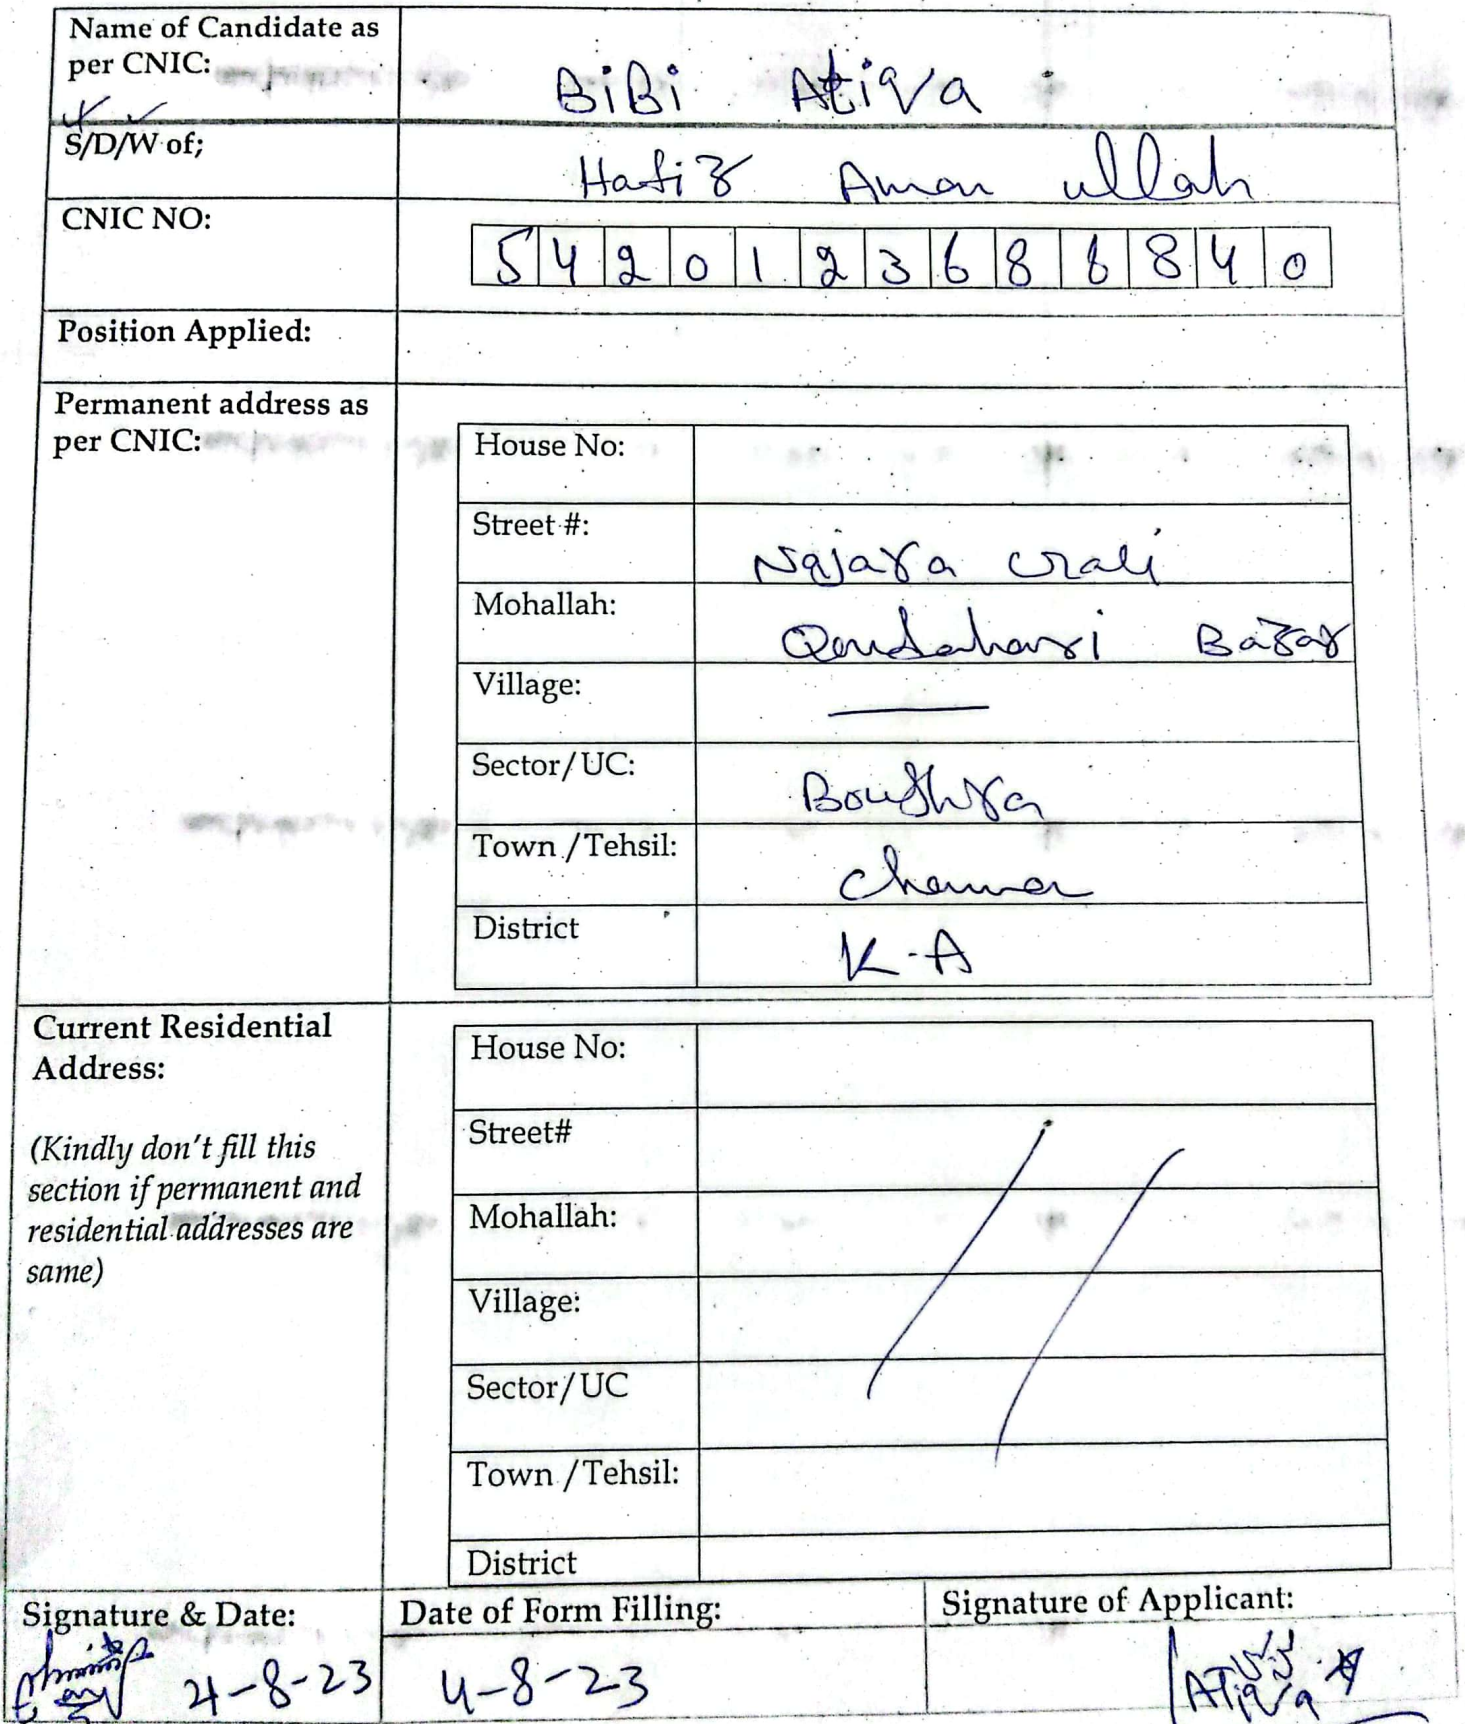 Name of Candidate as
per CNIC:
BiBi Atiqa
S/D/W of;
Hafiz Aman ullah
CNIC NO:
5 4 2 0 1 2 3 6 8 8 8 4 0
Position Applied:
Permanent address as
per CNIC:
House No:
Street #:
Mohallah:
Qandahari Bazar
Village:
Sector/UC:
Town /Tehsil:
Chaman
District
K.A
Current Residential
Address:
(Kindly don't fill this
section if permanent and
residential addresses are
same)
House No:
Street#
Mohallah:
Village:
Sector/UC
Town /Tehsil:
District
Signature & Date:
4-8-23
Date of Form Filling:
4-8-23
Signature of Applicant:
ATiqa